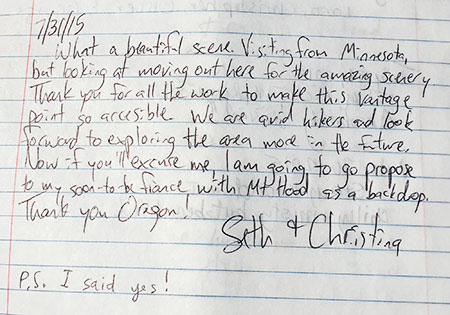 7/31/15
What a beautiful scene. Visiting from Minnesota,
but looking at moving out here for the amazing scenery
Thank you for all the work to make this vantage
point so accesible. We are avid hikers and look
forward to exploring the area more in the future.
Now if you'll excuse me, I am going to go propose
to my soon-to be fiance with Mt Hood as a backdrop.
Thank you Oregon!
Seth & Christina
P.S. I said yes!